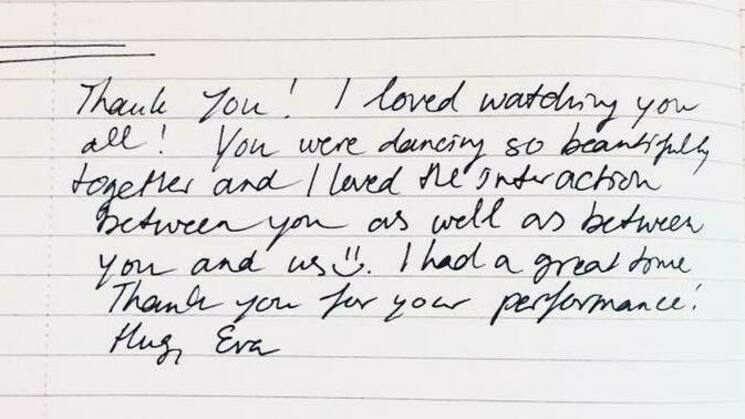 Thank You! I loved watching you
all! You were dancing so beautifully
together and I loved the interaction
between you as well as between
you and us :). I had a great time
Thank you for your performance!
Hug, Eva